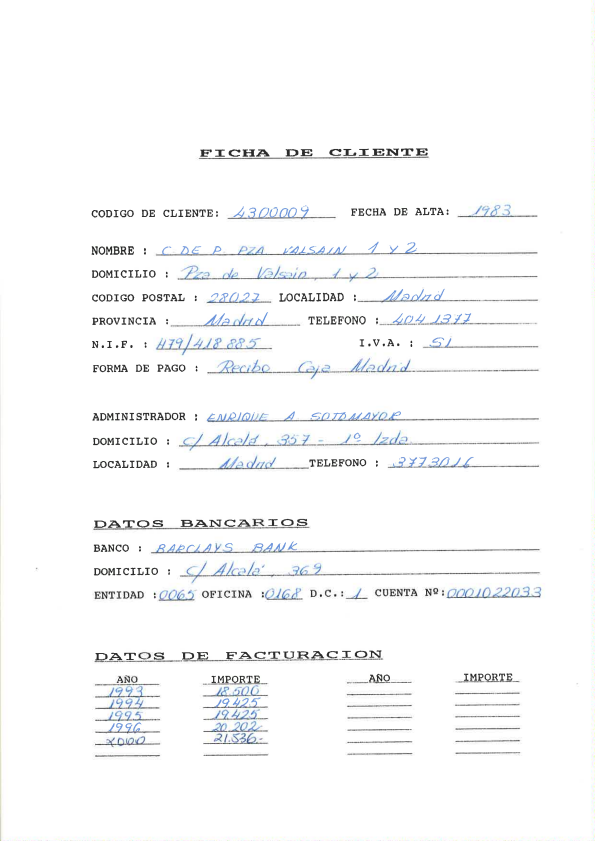 FICHA DE CLIENTE
CODIGO DE CLIENTE: 4300009 FECHA DE ALTA: 1983
NOMBRE : C DE P. PZA VALSAIN 1 Y 2
DOMICILIO : Pza de Valsain, 1 y 2
CODIGO POSTAL : 28027 LOCALIDAD : Madrid
PROVINCIA : Madrid TELEFONO : 404 1377
N.I.F. : 479/418885 I.V.A. : SI
FORMA DE PAGO : Recibo Caja Madrid
ADMINISTRADOR : ENRIQUE A. SOTOMAYOR
DOMICILIO : c/ Alcalá, 357 - 1º Izda
LOCALIDAD : Madrid TELEFONO : 3773016
DATOS BANCARIOS
BANCO : BARCLAYS BANK
DOMICILIO : c/ Alcalá, 369
ENTIDAD :0065 OFICINA :0168 D.C.: 1 CUENTA Nº:0001022033
DATOS DE FACTURACION
AÑO IMPORTE AÑO IMPORTE
1993 18.500
1994 19.425
1995 19.425
1996 20.202
2000 21.536.-